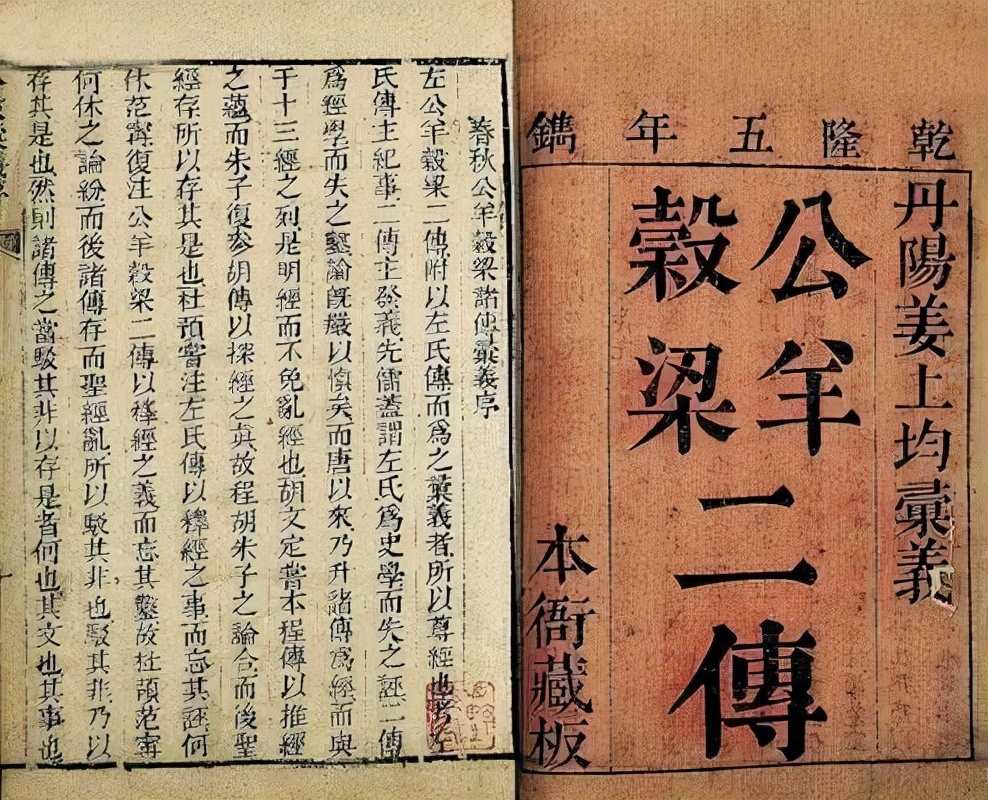 乾隆五年鐫
丹陽姜上均彙義
公羊
穀梁
二傳
本衙藏板
春秋公羊穀梁諸傳彙義序
左公羊穀梁二傳附以左氏傳而爲之彙義者所以尊經也考左
氏傳主紀事二傳主發義先儒蓋謂左氏爲史學而失之誣二傳
爲經學而失之鑿論旣嚴以慎矣而唐以來乃升諸傳爲經而與
于十三經之列是明經而不免亂經也胡文定嘗本程傳以推經
之蘊而朱子復參胡傳以探經之眞故程胡朱子之論合而後聖
經存所以存其是也杜預嘗注左氏傳以釋經之事而忘其誣何
休范寗復注公羊穀梁二傳以釋經之義而忘其鑿故杜預范寗
何休之論紛而後諸傳存而聖經亂所以駁其非也駁其非乃以
存其是也然則諸傳之當駁其非以存是者何也其文也其事也